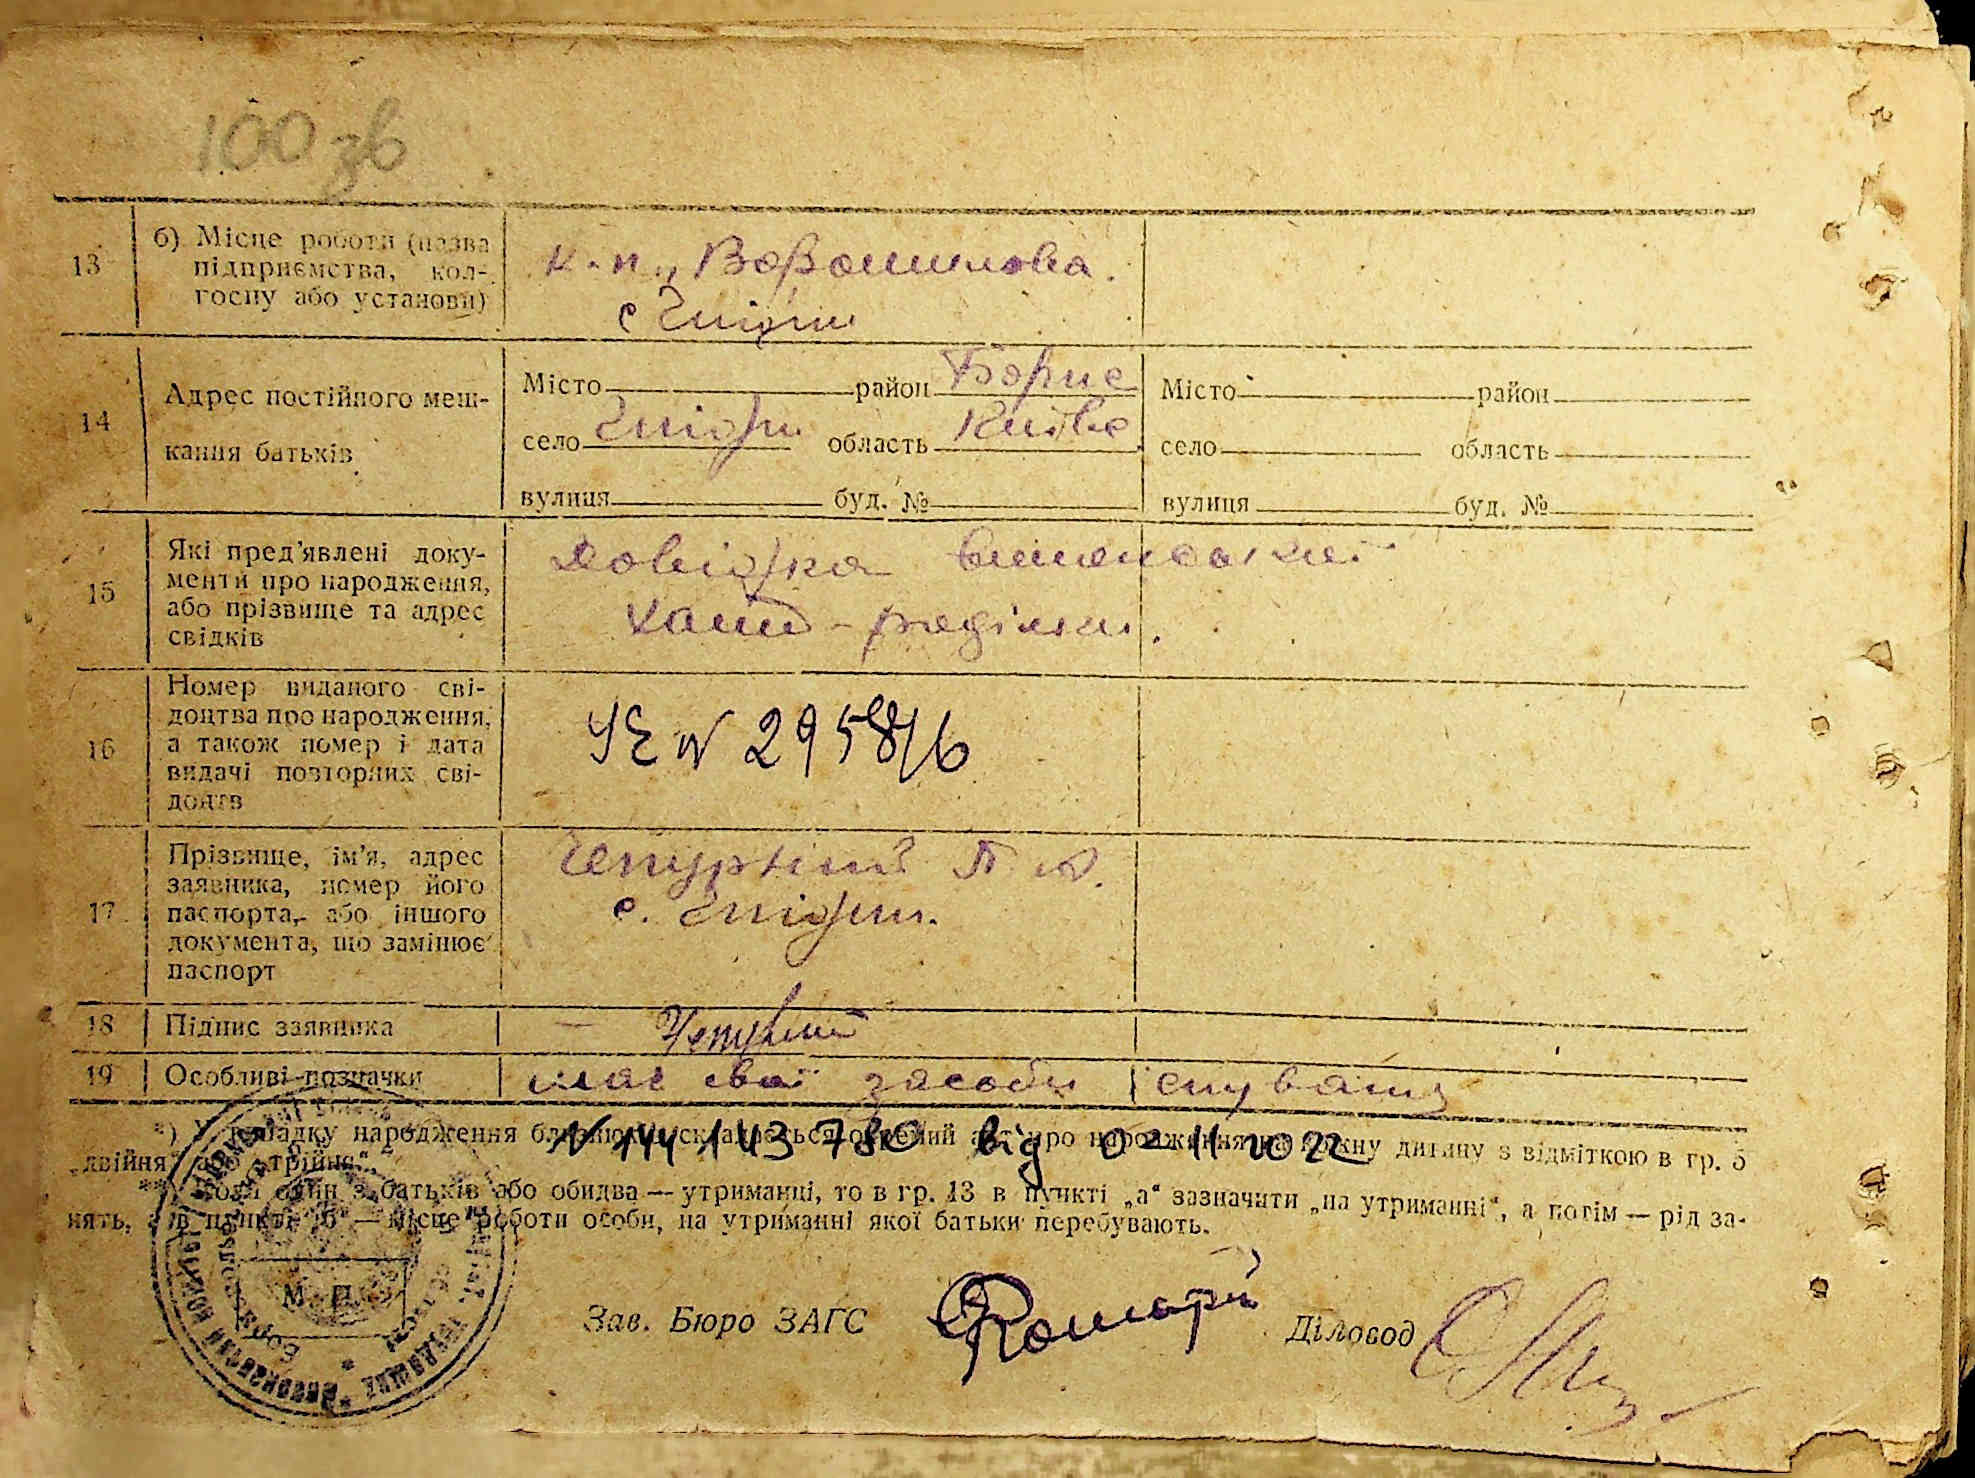 100 зв
13
б) Місце роботи (назва
підприємства, кол-
госпу або установи)
к-п „ Ворошилова.
с Гнідин
14
Адрес постійного меш-
кання батьків
Місто район Борис Місто район
село Гнідин область Київс село область
вулиця буд. № вулиця буд. №
15
Які пред’явлені доку-
менти про народження,
або прізвище та адрес
свідків
Довідка
16
Номер виданого сві-
доцтва про народження,
а також номер і дата
видачі повторних сві-
доцтв
УЕ № 295816
17
Прізвище, ім’я, адрес
заявника, номер його
паспорта, або іншого
документа, що замінює
паспорт
Чепурний П.
с. Гнідин.
18 Підпис заявника
Чепурний
19 Особливі позначки
має свої засоби існування
№ 144 143 780 від 02 11 2022
*) У випадку народження близнюків складається окремий акт про народження на кожну дитину з відміткою в гр. 5
„двійня“ або „трійня“.
**) Коли один з батьків або обидва — утриманці, то в гр. 13 в пункті „а“ зазначити „на утриманні“, а потім — рід за-
нять, а в пункті „б“ — місце роботи особи, на утриманні якої батьки перебувають.
М. П.
Зав. Бюро ЗАГС Діловод